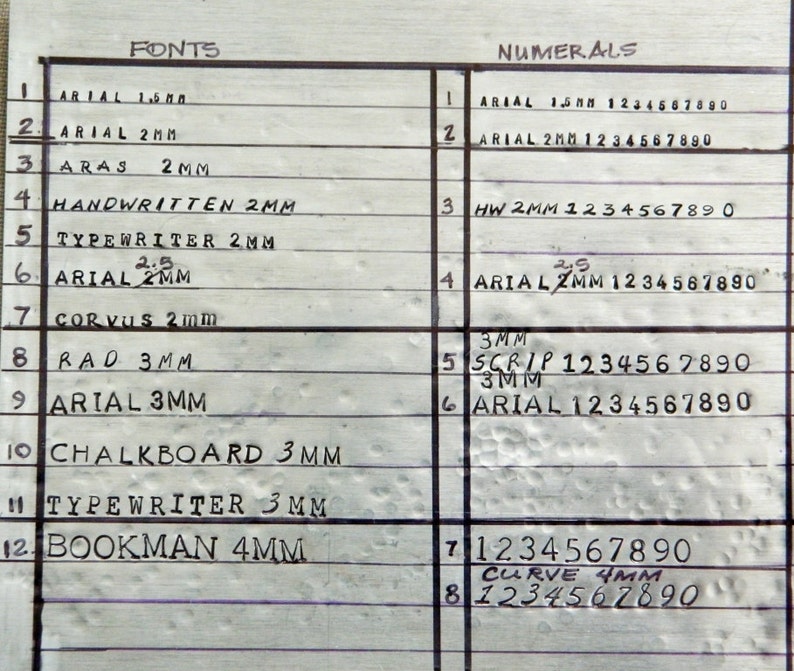 FONTS
1 ARIAL 1.5MM
2 ARIAL 2MM
3 ARAS 2MM
4 HANDWRITTEN 2MM
5 TYPEWRITER 2MM
2.5
6 ARIAL 2MM
7 CORVUS 2mm
8 RAD 3MM
9 ARIAL 3MM
10 CHALKBOARD 3MM
11 TYPEWRITER 3MM
12. BOOKMAN 4MM
NUMERALS
1 ARIAL 1.5MM 1234567890
2 ARIAL 2MM 1234567890
3 HW 2MM 1234567890
2.5
4 ARIAL 2MM 1234567890
3MM
5 SCRIP 1234567890
3MM
6 ARIAL 1234567890
7 1234567890
CURVE 4MM
8 1234567890